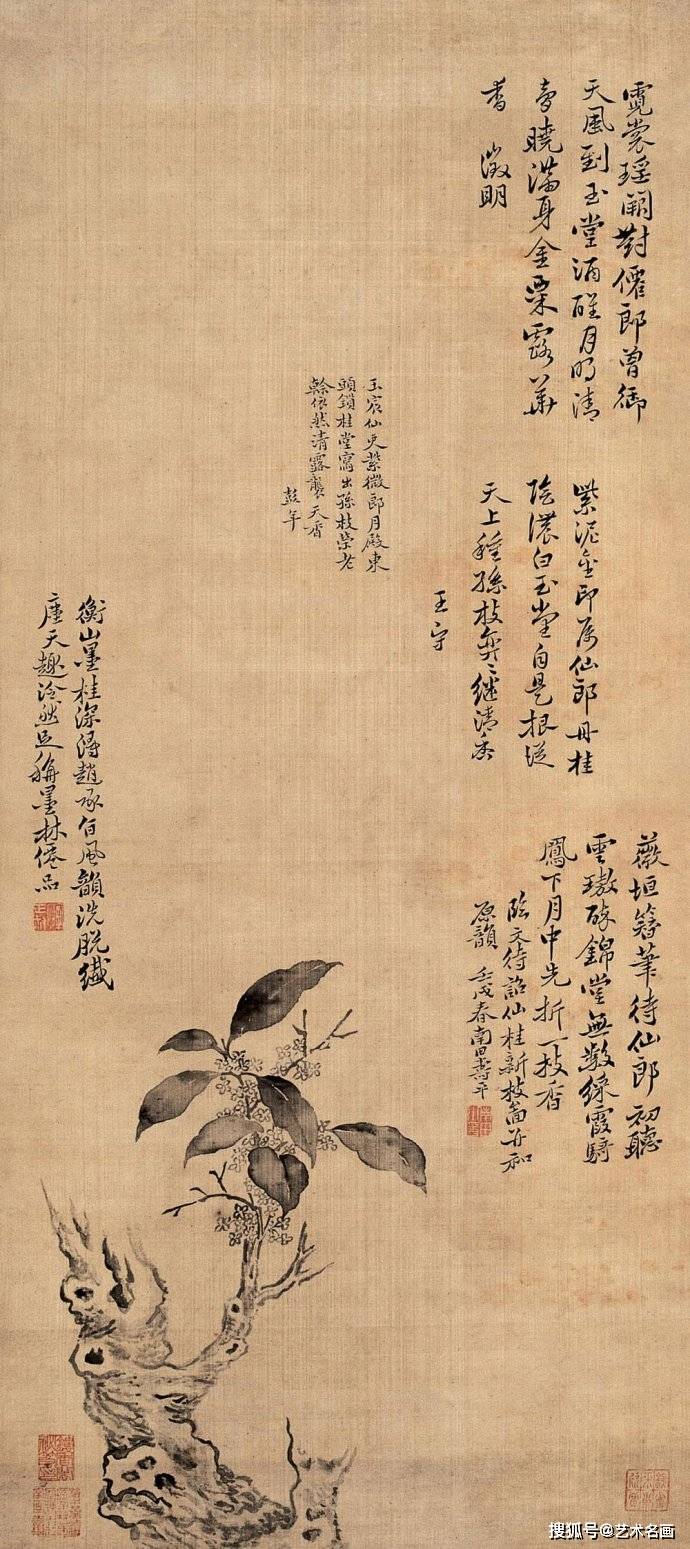 霓裳瑶阙對僊郎曾御
天風到玉堂酒醒月明清
夢曉滿身金粟露華
香 徵明
玉宸仙吏紫微郎月殿東
頭鎖桂堂寫出孫枝榮老
榦依然清露襲天香
彭年
紫泥金印属仙郎丹桂
陰濃白玉堂自是根従
天上種孫枝奕〻継清香
王守
薇垣簪筆待仙郎初聽
雲璈醉錦堂無數綵霞騎
鳳下月中先折一枝香
臨文待詔仙桂新枝啚并和
原韻 壬戌春南田壽平
衡山墨桂深得趙承旨風韻洗脫纖
塵天趣泠然足稱墨林僊品
搜狐号@艺术名画